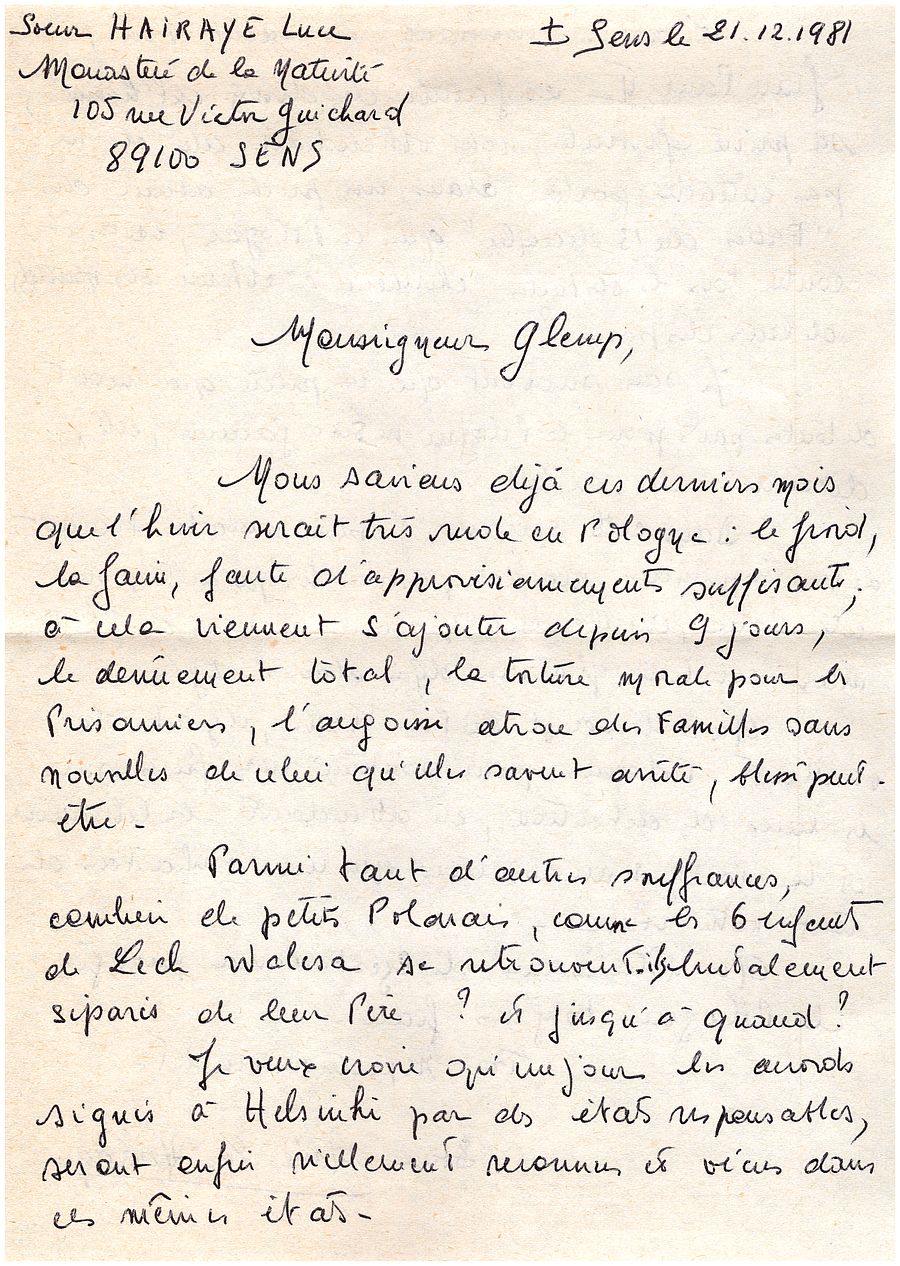 Soeur HAIRAYE Luce
± Sens le 21.12.1981
Monastère de la Nativité
105 rue Victor Guichard
89100 SENS
Monseigneur Glemp,
Nous savions déjà ces derniers mois
que l'hiver serait très rude en Pologne : le froid,
la faim, faute d'approvisionnements suffisants ;
à cela viennent s'ajouter depuis 9 jours,
le dénûement total, la torture morale pour les
Prisonniers, l'angoisse atroce des Familles sans
nouvelles de celui qu'elles savent arrêté, blessé peut-
être -
Parmi tant d'autres souffrances,
combien de petits Polonais, comme les 6 enfants
de Lech Walesa se retrouvent-ils brutalement
séparés de leur Père ? et jusqu'à quand ?
Je veux croire qu'un jour les accords
signés à Helsinki par des états responsables,
seront enfin réellement reconnus et vécus dans
ces mêmes états -